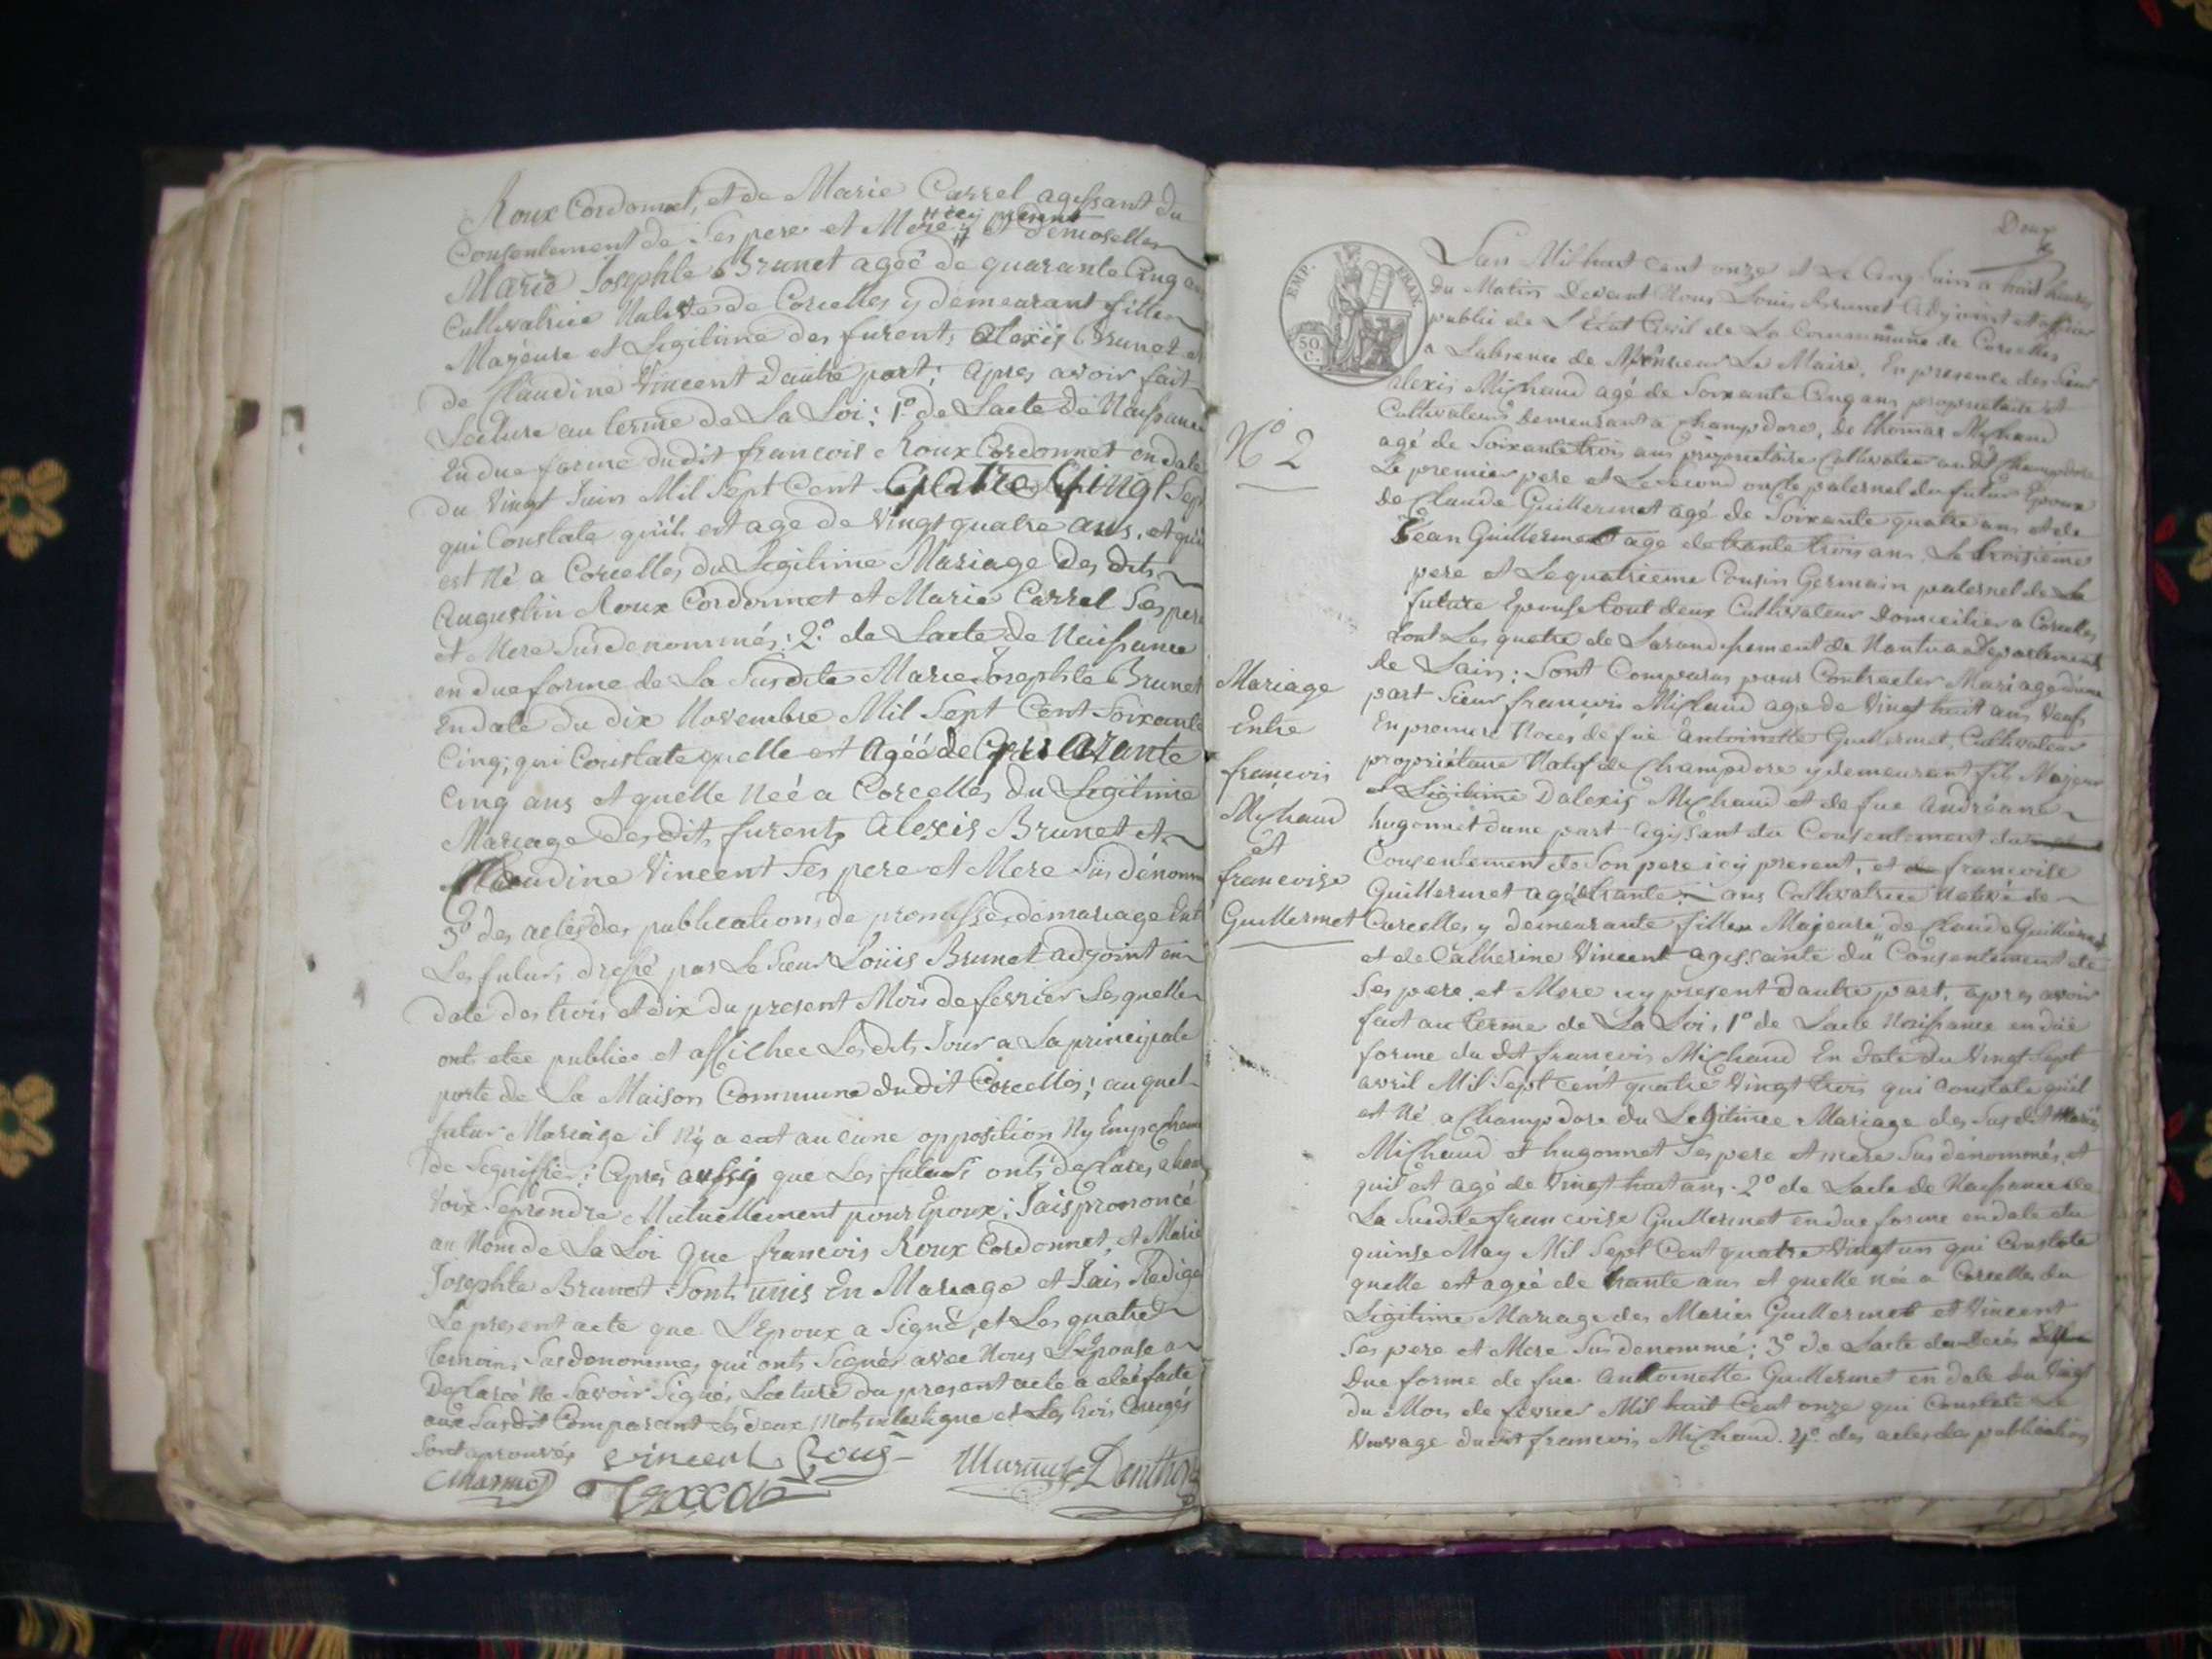 Roux Cordonnet, et de Marie Carrel agissant du
Consentement de Ses pere et Mere # et demoiselle
# icy present
Marie Josephte Brunet ageé de quarante Cinq ans
Cultivatrice Native de Corcelles y demeurant fille
Majeure et Legitime des furent, Alexis Brunet et
de Claudine Vincent Dautre part; Apres avoir fait
Lecture au terme de La Loi: 1º de Lacte de Naissance
En due forme dudit francois Roux Cordonnet en date
du Vingt Juin Mil Sept Cent Quatre Vingt Sept
qui Constate quil est age de Vingt quatre ans, et quil
est Né a Corcelles du Legitime Mariage des dits
Augustin Roux Cordonnet et Marie Carrel Ses pere
et Mere Susdenommés: 2º de Lacte de Naissance
en due forme de La Susdite Marie Josephte Brunet
En date du dix Novembre Mil Sept Cent Soixante
Cinq; qui Constate quelle est Ageé de Quarante
Cinq ans et quelle Neé a Corcelles du Legitime
Mariage des dits furent Alexis Brunet et
Claudine Vincent Ses pere et Mere Sus dénomm
3º des actes des publications de promesse de mariage Ent
Les futurs, dressé par Le Sieur Louis Brunet adjoint en
date des trois et dix du present Mois de fevrier Lesquelle
ont eteé publieé et affichee Lesdits Jours a La principale
porte de La Maison Commune dudit Corcelles; auquel
futur Mariage il N'y a eut aucune opposition Ny Empechem
de Signiffié: Aprés aussy que Les futurs ont déclaré a hau
Voix Se prendre Mutuellement pour Epoux; Jais prononcé
au Nom de La Loi que francois Roux Cordonnet, et Marie
Josephte Brunet Sont unis En Mariage et Jais Redigé
Le present acte que L'Epoux a Signé, et Les quatre
temoins Susdenommés qui onts Signés avec Nous L'Epouse a
Declaré Ne Savoir Signé, Lecture du present acte a eteé faite
aux Susdit Comparant Les deux Mots interligne et Les trois Corrigés
Sont aprouvés Vincent Roux
Deux
EMP. FRAN.
50 C.
Lan Mil huit Cent onze et Le Cinq Juin a huit heures
du Matin Devant Nous Louis Brunet Adjoint et officier
public de L'Etat Civil de La Commune de Corcelles
a Labsence de Monsieur Le Maire. En presence des Sieur
alexis Michaud agé de Soixante Cinq ans proprietaire et
Cultivateur demeurant a Champdore, de thomas Michaud
agé de Soixante trois ans proprietaire Cultivateur audit Champdore
Le premier pere et Le Second oncle paternel du futur Epoux
de Claude Guillermet agé de Soixante quatre ans et de
Jean Guillermet age de trante trois ans Le troisieme
pere et Le quatrieme Cousin Germain paternel de La
future Epouse tout deux Cultivateur Domicilier a Corcelles
tout Les quatre de Larondissement de Nantua departement
de Lain: Sont Comparus pour Contracter Mariage dune
part Sieur francois Michaud age de Vingt huit ans Veuf
En premiere Noces de fue Antoinette Guillermet, Cultivateur
proprietaire Natif de Champdore y demeurant fils Majeur
et Légitime D'alexis Michaud et de fue Andréane
hugonnet dune part agissant du Consentement du
Consentement de Son pere icy present, et francoise
Guillermet ageé trante ans Cultivatrice Native de
Corcelles y demeurante fille Majeure de Claude Guillermet
et de Catherine Vincent agissante du Consentement de
Ses pere et Mere icy present dautre part, apres avoir
fait au terme de La Loi, 1º de Lacte Naissance en düe
forme du dit francois Michaud En date du Vingt Sept
avril Mil Sept cent quatre Vingt trois qui Constate quil
est Né a Champdore du Legitime Mariage des Susdit Mariés
Michaud et hugonnet Ses pere et mere Susdénommés, et
quil est agé de Vingt huit ans. 2º de Lacte de Naissance de
La Susdite francoise Guillermet en due forme en date du
quinse May Mil Sept Cent quatre Vingt un qui Constate
quelle est ageé de trante ans et quelle née a Corcelles du
Légitime Mariage des Mariés Guillermet et Vincent
Ses pere et Mere Susdenommé: 3º de Lacte de Decés
Due forme de fue Antoinette Guillermet en date du Vingt
du Mois de fevrier Mil huit Cent onze qui Constate Le
Veuvage dudit francois Michaud. 4º des actes des publication
Nº 2
Mariage
Entre
francois
Michaud
et
francoise
Guillermet